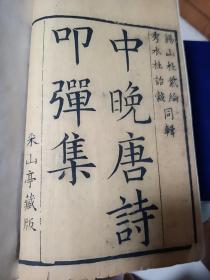 錫山杜紫綸同輯
秀水杜詒穀
中晚唐詩
叩彈集
采山亭藏版